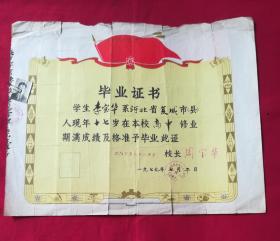 毕业证书
学生李宝华系河北省复城市县
人现年十七岁在本校高中修业
期满成绩及格准予毕业此证
校长
一九七九年七月 日